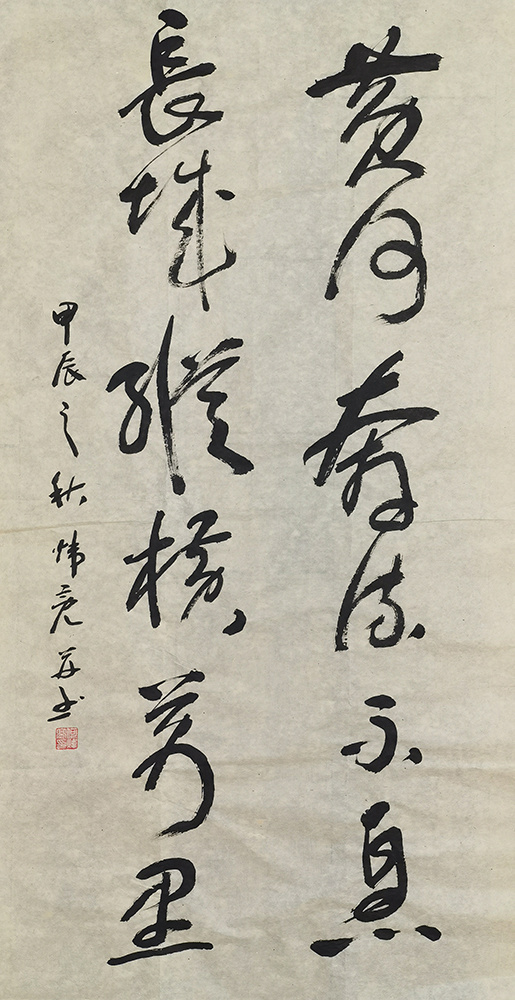 黄河奔流不息
長城縱橫萬里
甲辰之秋炜亮并书